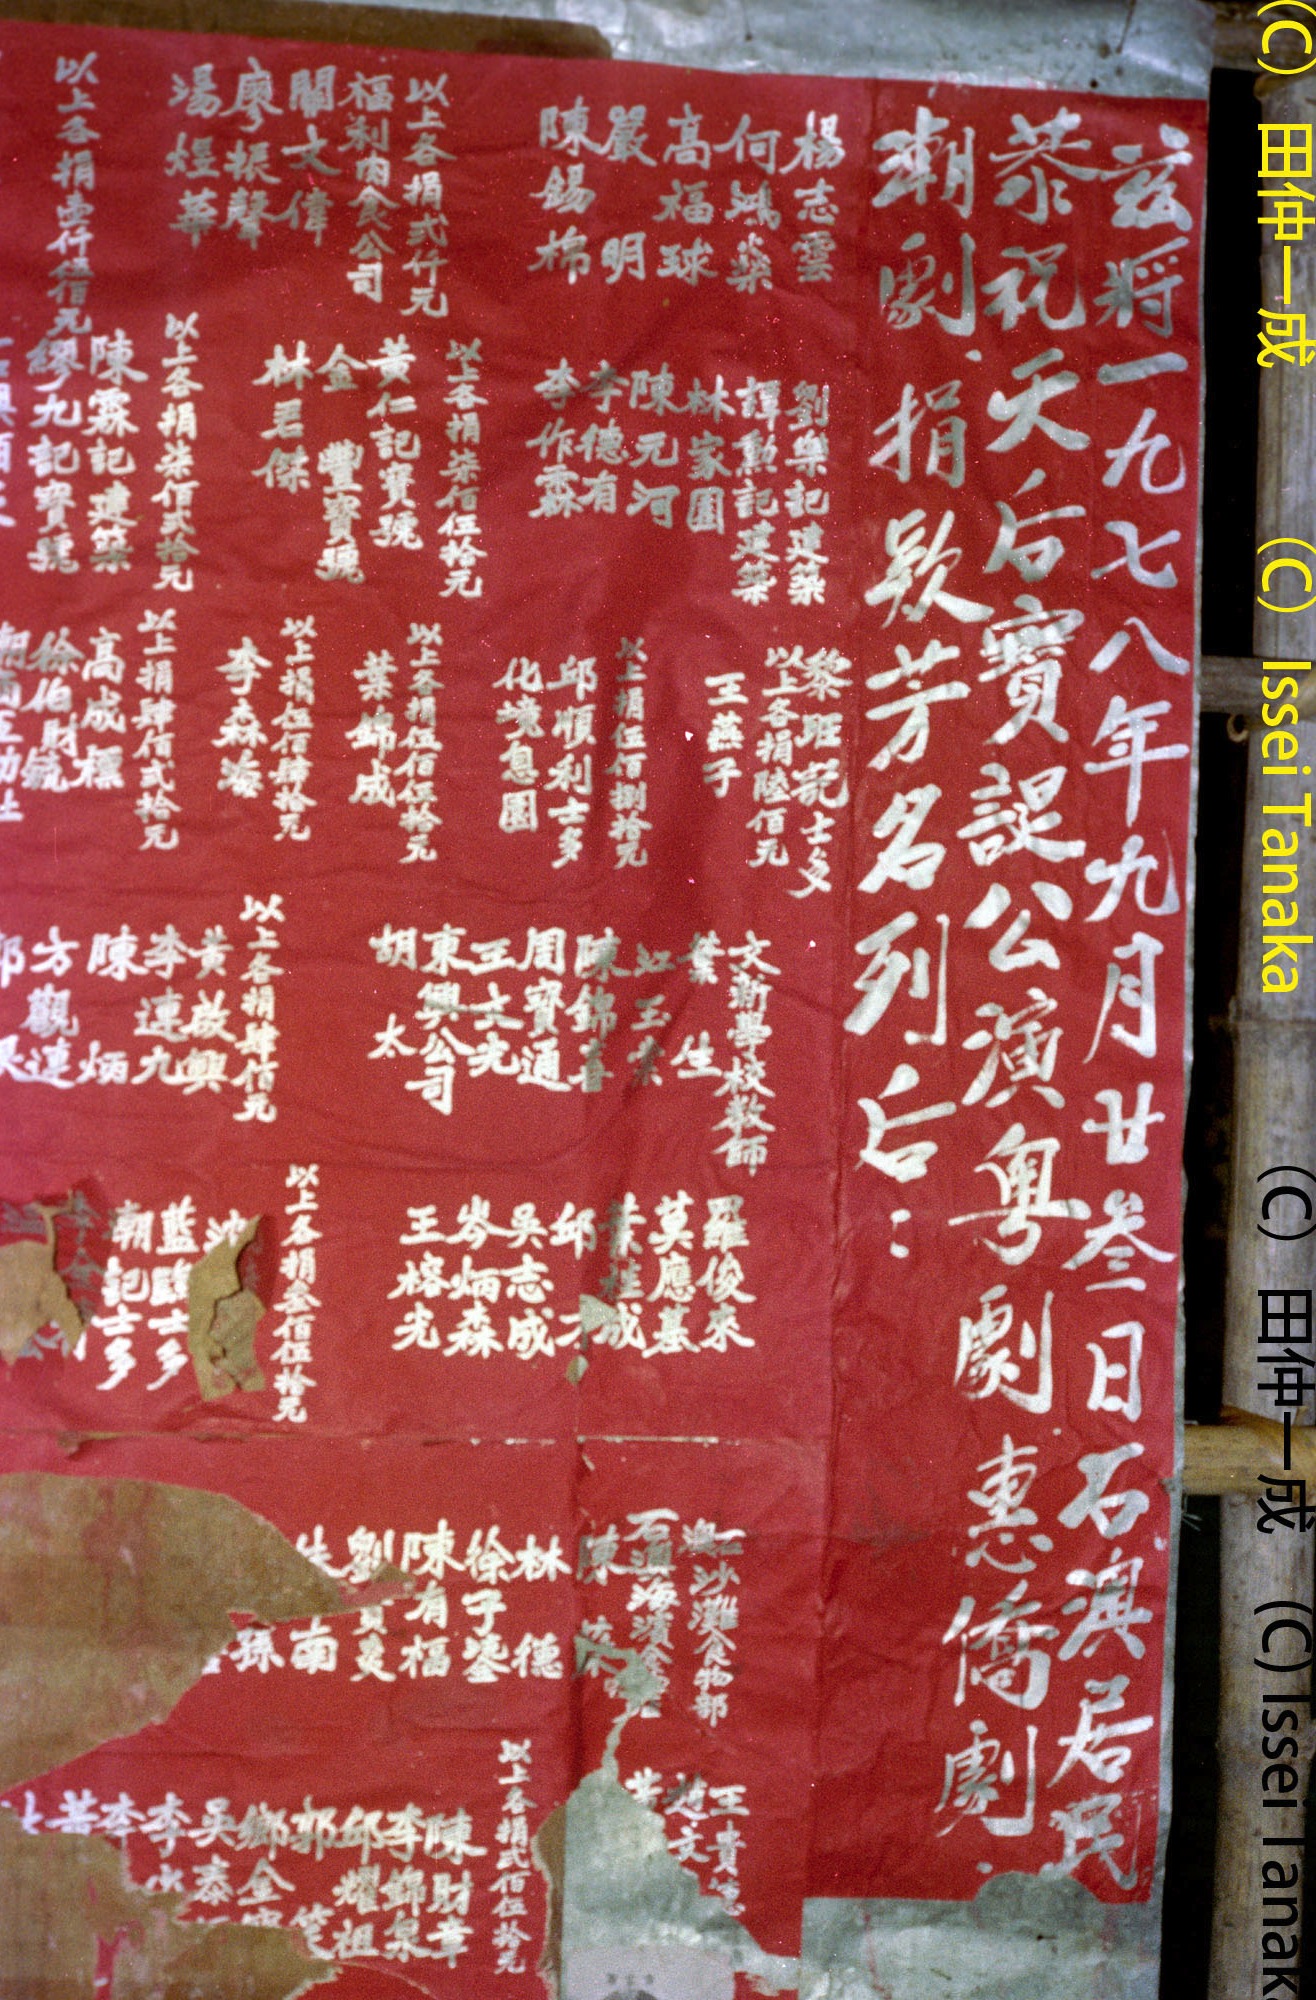 茲將一九七八年九月廿叁日石澳居民
恭祝天后寶誕公演粵劇惠僑劇
潮劇捐欵芳名列后：
楊志雲
何鴻燊
高福球
嚴明
陳錫棉
以上各捐弍仟元
福利肉食公司
關文偉
廖振聲
湯煜華
以上各捐壹仟伍佰元
劉樂記建築
譚勳記建築
林家園
陳元河
李德有
李作霖
以上各捐柒佰伍拾元
黃仁記寶號
金豐寶號
林君傑
以上各捐柒佰弍拾元
陳霖記建築
繆九記寶號
黎班記士多
以上各捐陸佰元
王燕子
以上捐伍佰捌拾元
邱順利士多
化境息園
以上各捐伍佰伍拾元
葉錦成
以上捐伍佰肆拾元
李森浩
以上捐肆佰弍拾元
高成標
徐伯財
文新學校教師
葉生
江玉
陳錦喜
周寶通
王士光
東興公司
胡太
以上各捐肆佰元
黃啟興
李連九
陳炳
方觀連
羅俊來
莫應基
葉桂成
邱
吳志成
岑炳森
王榕光
以上各捐叁佰伍拾元
士多
朝記士多
沙灘食物部
石澳海濱
陳
林德
徐子鎏
陳有福
劉
南
孫
王貴
趙文
以上各捐弍佰伍拾元
陳財章
李錦泉
邱耀祖
郭
鄉金
吳泰
李
李
(C) 田仲一成 (C) Issei Tanaka (C) 田仲一成 (C) Issei Tanaka